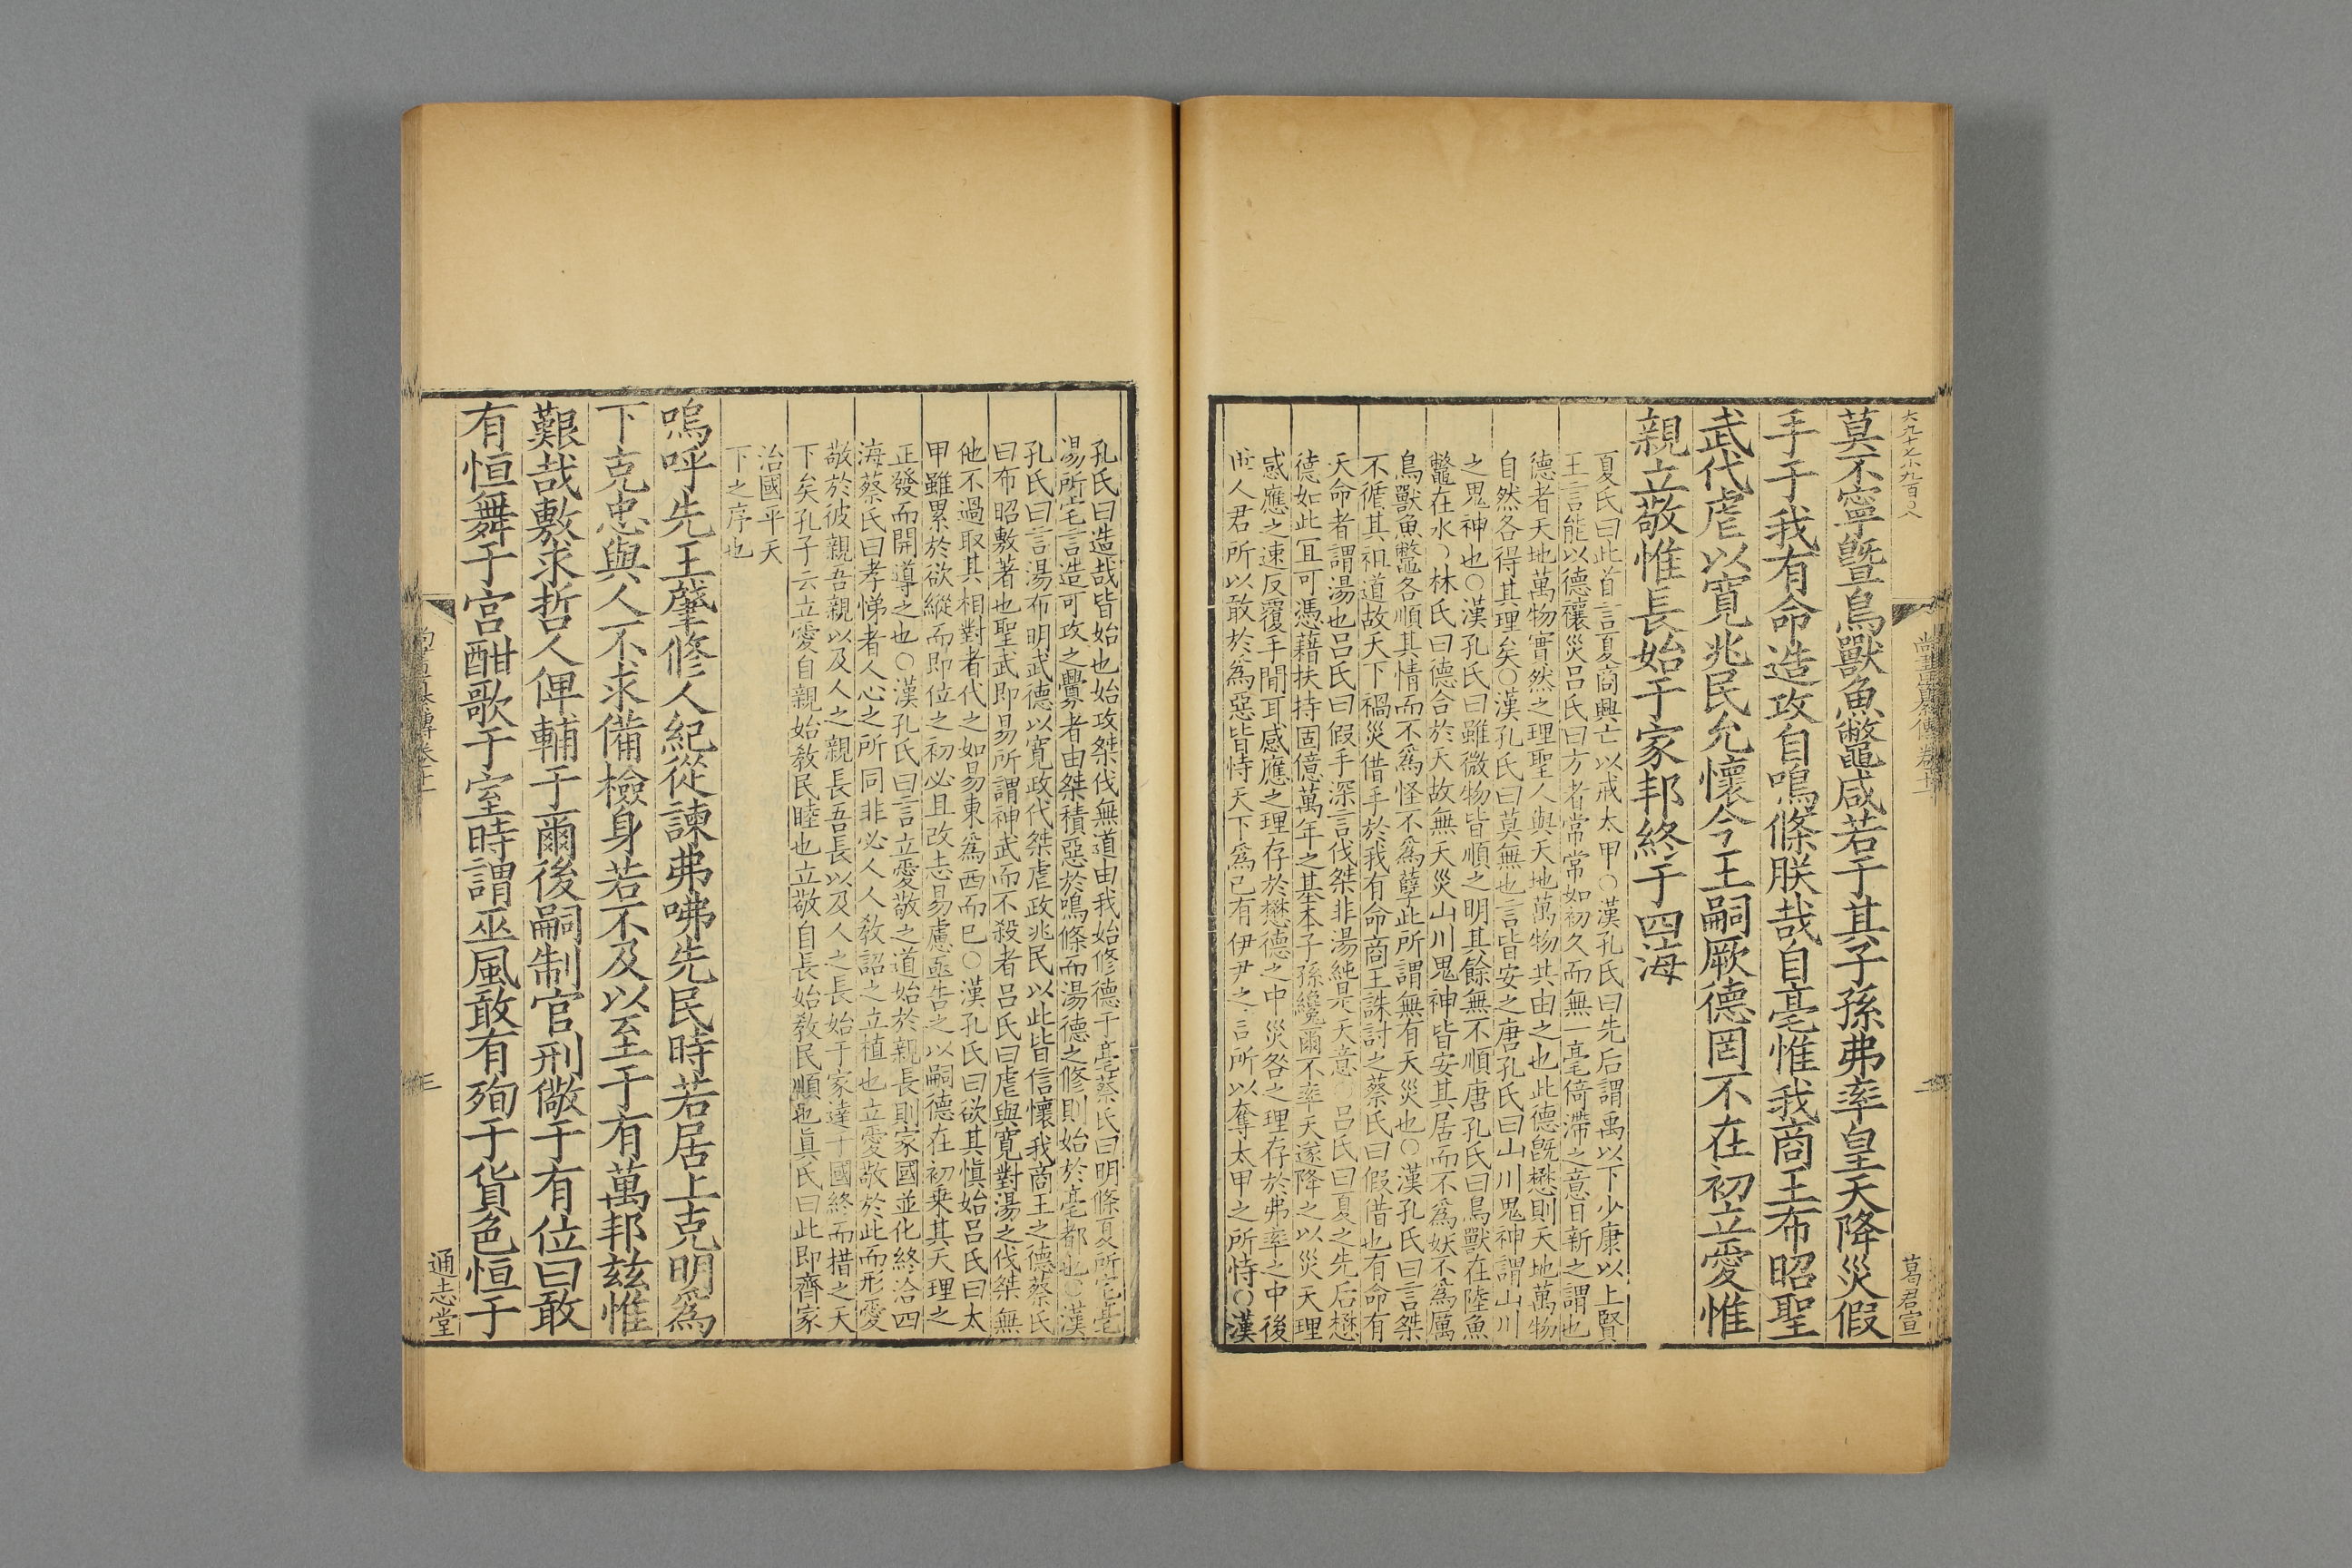 大九十七小九百八
葛君宣
莫不寧曁鳥獸魚鼈咸若于其子孫弗率皇天降災假
手于我有命造攻自鳴條朕哉自亳惟我商王布昭聖
武代虐以寬兆民允懷今王嗣厥德罔不在初立愛惟
親立敬惟長始于家邦終于四海
夏氏曰此首言夏商興亡以戒太甲○漢孔氏曰先后謂禹以下少康以上賢
王言能以德禳災呂氏曰方者常常如初久而無一毫倚滯之意日新之謂也
德者天地萬物實然之理聖人與天地萬物共由之也此德旣懋則天地萬物
自然各得其理矣○漢孔氏曰莫無也言皆安之唐孔氏曰山川鬼神謂山川
之鬼神也○漢孔氏曰雖微物皆順之明其餘無不順唐孔氏曰鳥獸在陸魚
鼈在水○林氏曰德合於天故無天災山川鬼神皆安其居而不爲妖不爲厲
鳥獸魚鼈各順其情而不爲怪不爲孽此所謂無有天災也○漢孔氏曰言桀
不循其祖道故天下禍災借手於我有命商王誅討之蔡氏曰假借也有命有
天命者謂湯也呂氏曰假手深言伐桀非湯純是天意○呂氏曰夏之先后懋
德如此宜可憑藉扶持固億萬年之基本子孫纔爾不率天遂降之以災天理
感應之速反覆手間耳感應之理存於懋德之中災咎之理存於弗率之中後
世人君所以敢於爲惡皆恃天下爲已有伊尹之言所以奪太甲之所恃○漢
孔氏曰造哉皆始也始攻桀伐無道由我始修德于亳蔡氏曰明條夏所宅亳
湯所宅言造可攻之釁者由桀積惡於鳴條而湯德之修則始於亳都也○漢
孔氏曰言湯布明武德以寬政代桀虐政兆民以此皆信懷我商王之德蔡氏
曰布昭敷著也聖武即易所謂神武而不殺者呂氏曰虐與寬對湯之伐桀無
他不過取其相對者代之如易東爲西而已○漢孔氏曰欲其愼始呂氏曰太
甲雖累於欲縱而即位之初必且改志易慮亟告之以嗣德在初乗其天理之
正發而開導之也○漢孔氏曰言立愛敬之道始於親長則家國並化終洽四
海蔡氏曰孝悌者人心之所同非必人人敎詔之立植也立愛敬於此而形愛
敬於彼親吾親以及人之親長吾長以及人之長始于家達于國終而措之天
下矣孔子云立愛自親始敎民睦也立敬自長始敎民順也眞氏曰此即齊家
治國平天
下之序也
嗚呼先王肇修人紀從諫弗咈先民時若居上克明爲
下克忠與人不求備檢身若不及以至于有萬邦兹惟
艱哉敷求哲人俾輔于爾後嗣制官刑儆于有位曰敢
有恒舞于宮酣歌于室時謂巫風敢有殉于貨色恒于
三
通志堂